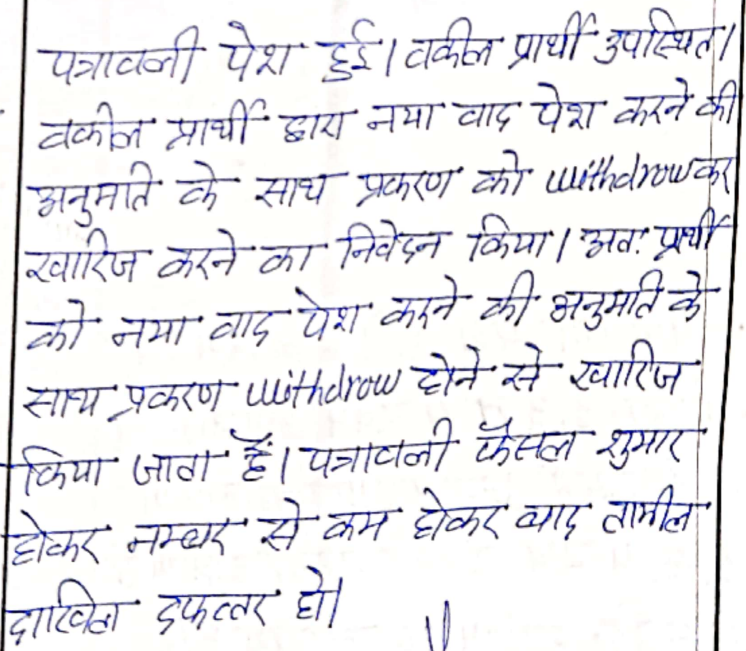 पत्रावली पेश हुई। वकील प्रार्थी उपस्थित।
वकील प्रार्थी द्वारा नया वाद पेश करने की
अनुमति के साथ प्रकरण को withdrow कर
खारिज करने का निवेदन किया। अतः प्रार्थी
को नया वाद पेश करने की अनुमति के
साथ प्रकरण withdrow होने से खारिज
किया जाता हैं। पत्रावली फैसल शुमार
होकर नम्बर से कम होकर बाद तामील
दाखिल दफ्तर हो।